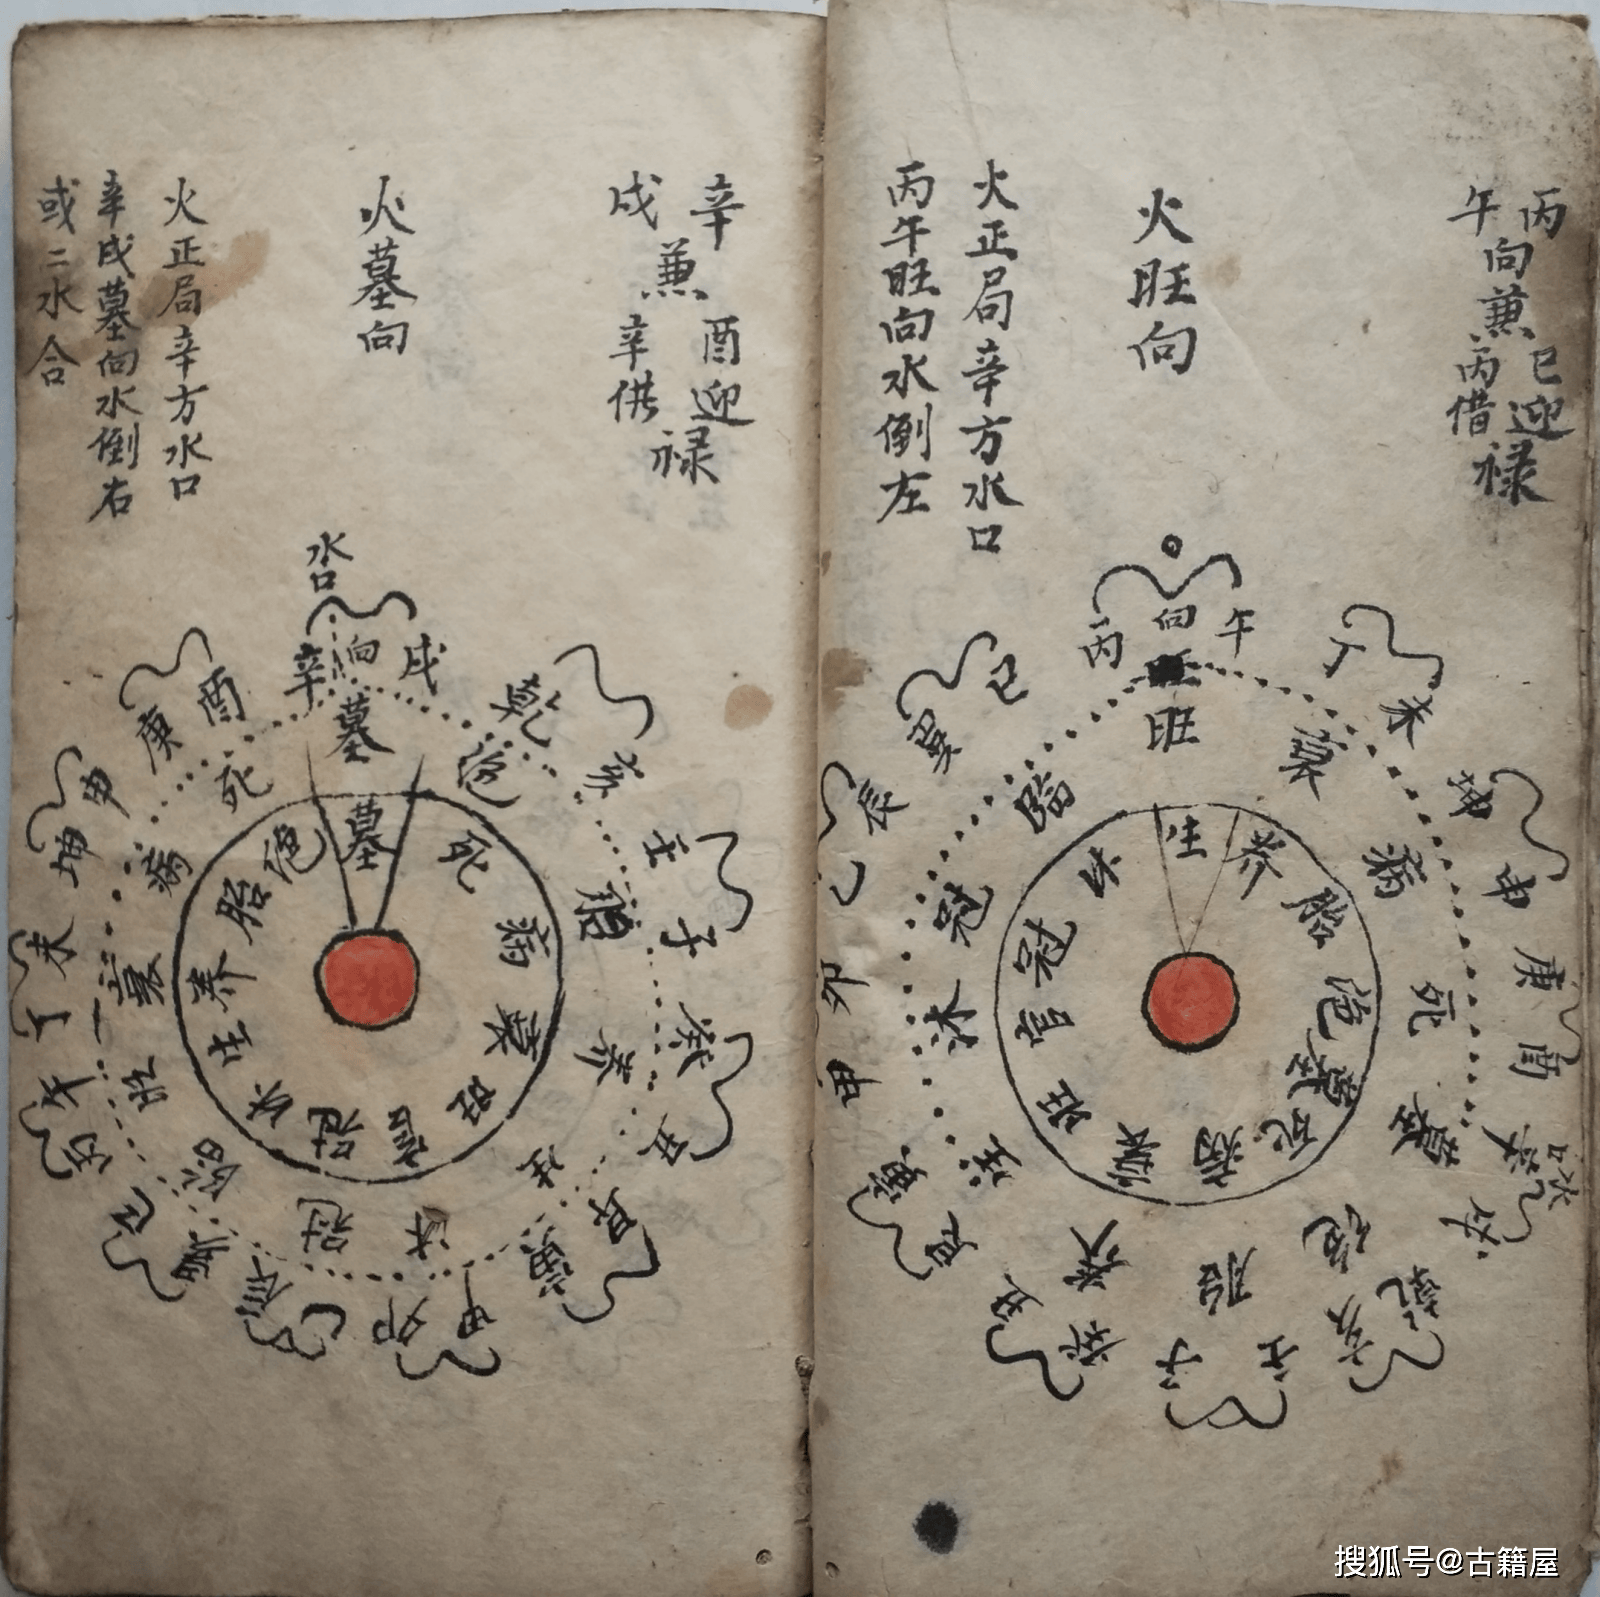 丙午向兼
巳丙迎借禄
火旺向
火正局辛方水口
丙午旺向水倒左
向
丙 午
旺
丁 未
衰
坤 申
病
庚 酉
死
辛 戌
水口
墓
乾 亥
绝
壬 子
胎
癸 丑
养
艮 寅
生
甲 卯
沐
乙 辰
冠
巽 巳
临
生
养
胎
绝
墓
死
病
衰
旺
官
冠
沐
辛戌兼
酉辛迎供禄
火墓向
火正局辛方水口
辛戌墓向水倒右
或二水合
水口
辛 向 戌
墓
乾 亥
绝
壬 子
胎
癸 丑
养
艮 寅
生
甲 卯
沐
乙 辰
冠
巽 巳
临
丙 午
旺
丁 未
衰
坤 申
病
庚 酉
死
墓
死
病
衰
旺
官
冠
沐
生
养
胎
绝
搜狐号@古籍屋